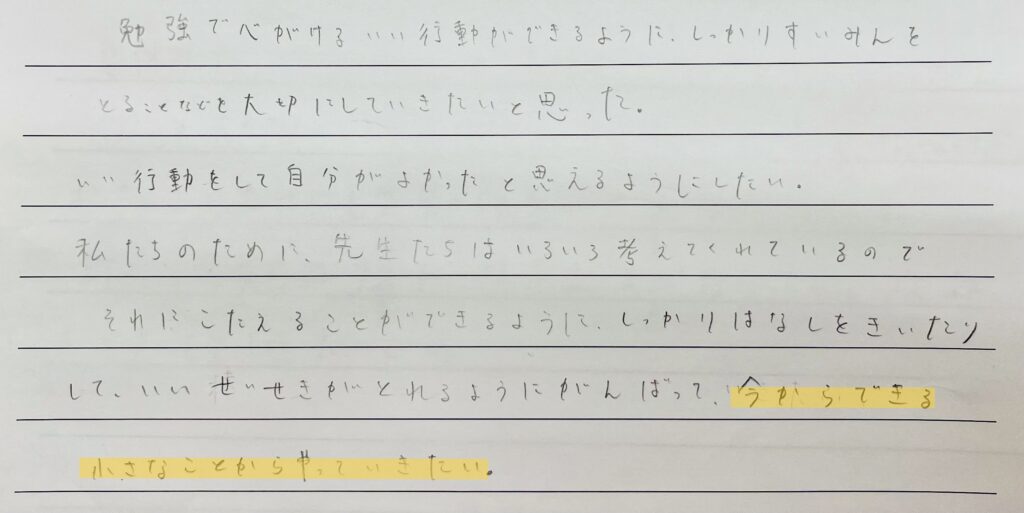 勉強で心がけるいい行動ができるように、しっかりすいみんを
とることなどを大切にしていきたいと思った。
いい行動をして自分がよかったと思えるようにしたい。
私たちのために、先生たちはいろいろ考えてくれているので
それにこたえることができるように、しっかりはなしをきいたり
して、いいせいせきがとれるようにがんばって、今からできる
小さなことからやっていきたい。